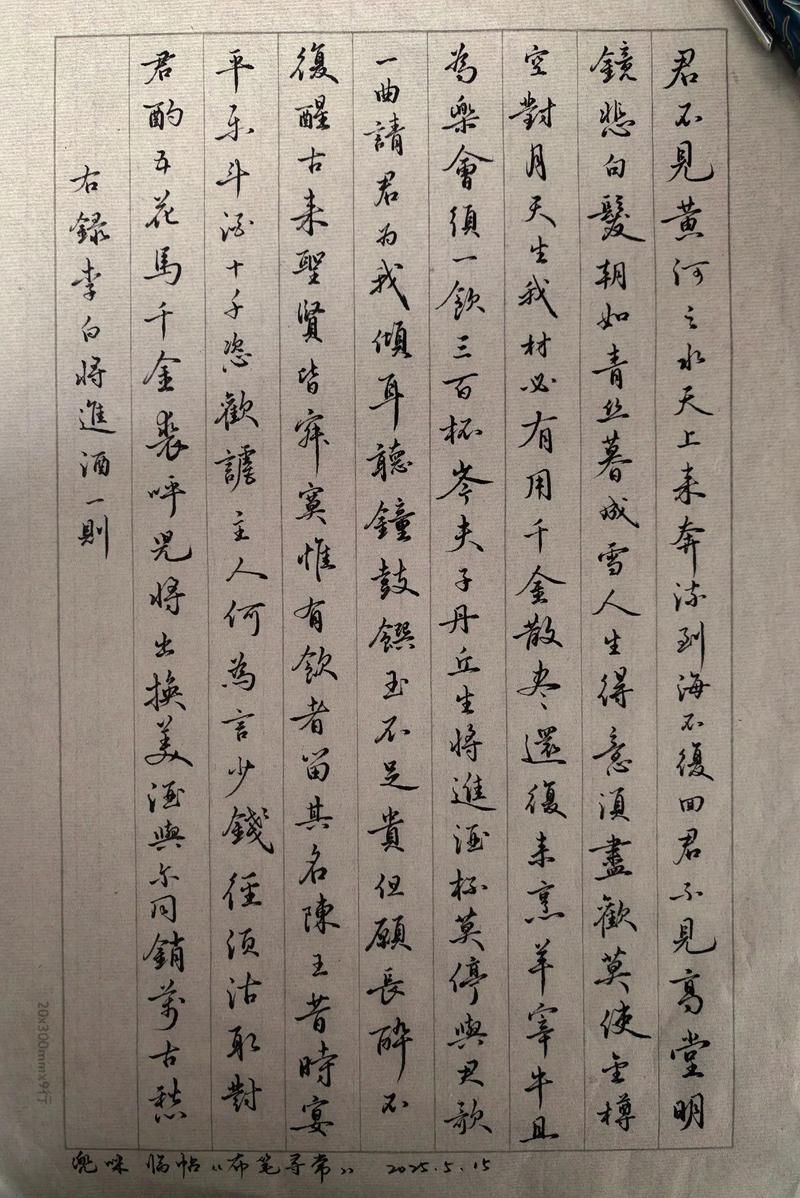 君不見黄河之水天上来奔流到海不復回君不見高堂明
鏡悲白髮朝如青丝暮成雪人生得意須盡歡莫使金樽
空對月天生我材必有用千金散尽還復来烹羊宰牛且
為樂會須一飲三百杯岑夫子丹丘生将進酒杯莫停與君歌
一曲請君为我傾耳聽鐘鼓饌玉不足貴但願長醉不
復醒古来聖賢皆寂寞惟有飲者留其名陳王昔時宴
平乐斗酒十千恣歡謔主人何為言少錢径須沽取對
君酌五花馬千金裘呼児将出換美酒與尔同銷萬古愁
右録李白将進酒一則
兜咪 临帖《布笔寻常》 2025.5.15
20x300mmx9行